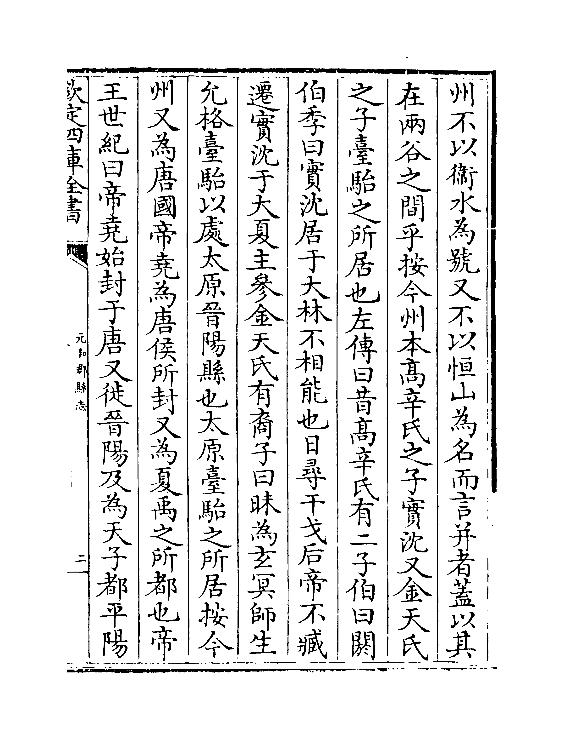 州不以衞水為號又不以恒山為名而言并者蓋以其
在兩谷之間乎按今州本髙辛氏之子實沈又金天氏
之子臺駘之所居也左傳曰昔髙辛氏有二子伯曰閼
伯季曰實沈居于大林不相能也日尋干戈后帝不臧
遷實沈于大夏主參金天氏有裔子曰昧為玄冥師生
允格臺駘以處太原晉陽縣也太原臺駘之所居按今
州又為唐國帝堯為唐侯所封又為夏禹之所都也帝
王世紀曰帝堯始封于唐又徙晉陽及為天子都平陽
欽定四庫全書
元和郡縣志
二